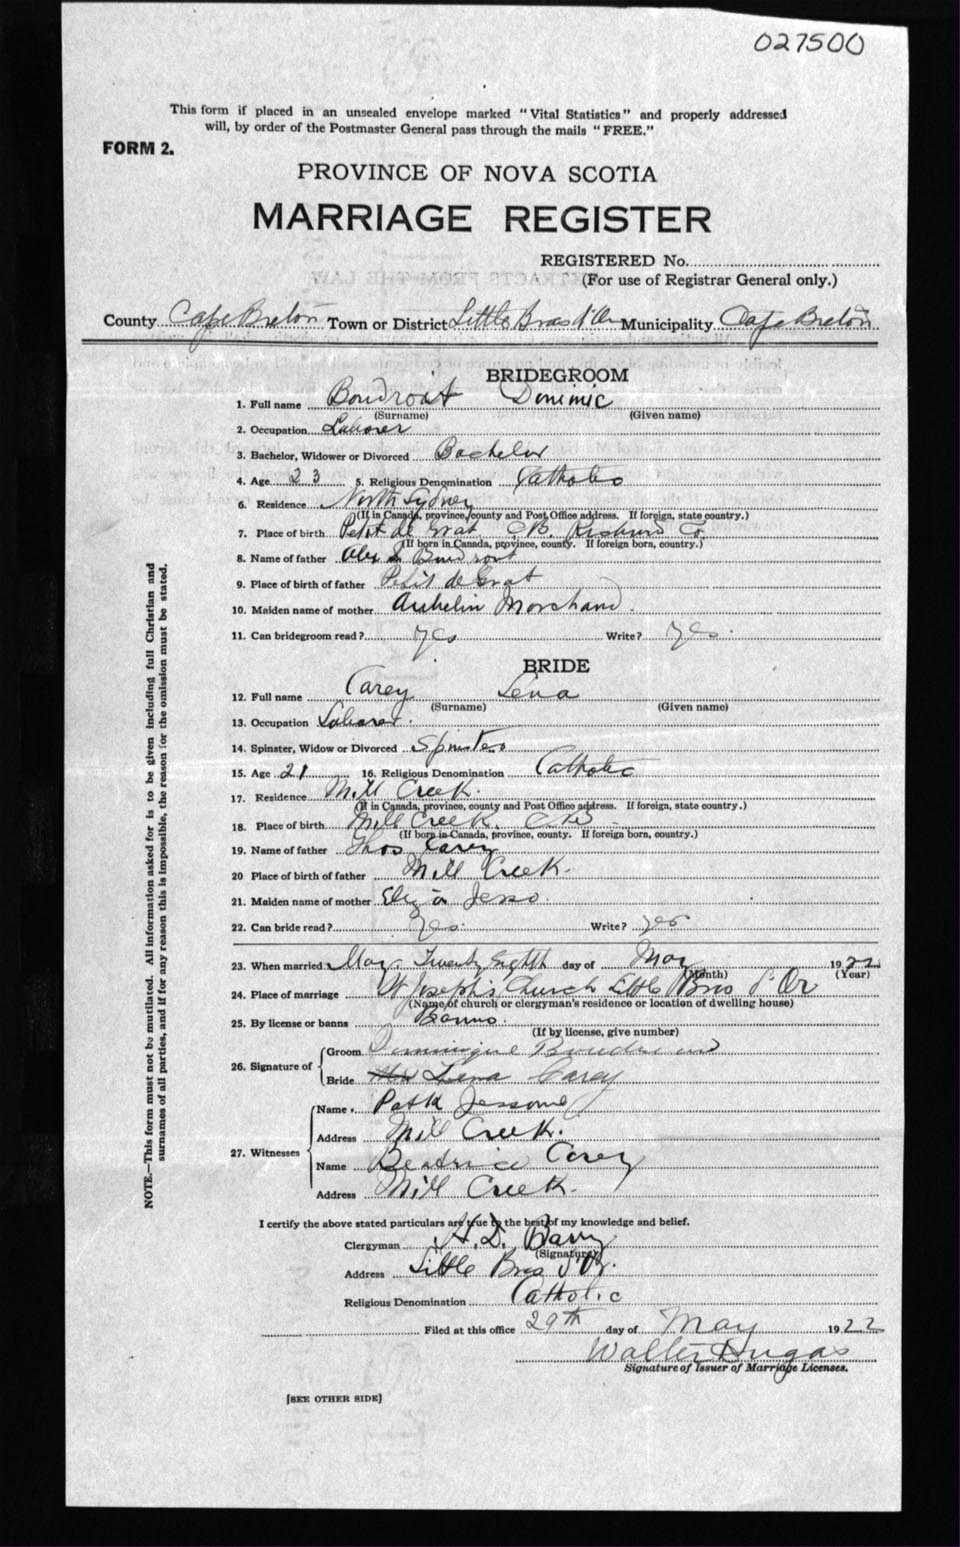 027500
This form if placed in an unsealed envelope marked "Vital Statistics" and properly addressed
will, by order of the Postmaster General pass through the mails "FREE."
FORM 2.
PROVINCE OF NOVA SCOTIA
MARRIAGE REGISTER
REGISTERED No.
(For use of Registrar General only.)
County Cape Breton Town or District Little Bras d'Or Municipality Cape Breton
BRIDEGROOM
1. Full name Boudroit Dominic
(Surname) (Given name)
2. Occupation Laborer
3. Bachelor, Widower or Divorced Bachelor
4. Age 23 5. Religious Denomination Catholic
6. Residence North Sydney
(If in Canada, province, county and Post Office address. If foreign, state country.)
7. Place of birth Petit de Grat CB. Richmond Co
(If born in Canada, province, county. If foreign born, country.)
8. Name of father Alex
9. Place of birth of father Petit de Grat
10. Maiden name of mother Marchand.
11. Can bridegroom read? Yes Write? Yes.
BRIDE
12. Full name Carey Lena
(Surname) (Given name)
13. Occupation Laborer.
14. Spinster, Widow or Divorced Spinster
15. Age 21 16. Religious Denomination Catholic
17. Residence Mill Creek.
(If in Canada, province, county and Post Office address. If foreign, state country.)
18. Place of birth Mill Creek.
(If born in Canada, province, county. If foreign born, country.)
19. Name of father Thos Carey
20 Place of birth of father Mill Creek.
21. Maiden name of mother Jesso.
22. Can bride read? Yes. Write? Yes
23. When married May. Twenty Eighth day of May 1922
(Month) (Year)
24. Place of marriage St Joseph's Church Little Bras d'Or
(Name of church or clergyman's residence or location of dwelling house)
25. By license or banns Banns.
(If by license, give number)
26. Signature of
Groom Dominique
Bride Lena Carey
27. Witnesses
Name Patk Jessome
Address Mill Creek.
Name Beatrice Carey
Address Mill Creek.
I certify the above stated particulars are true to the best of my knowledge and belief.
Clergyman H. D. Barry
(Signature)
Address Little Bras d'Or.
Religious Denomination Catholic
Filed at this office 29th day of May 1922
Walter
Signature of Issuer of Marriage Licenses.
[SEE OTHER SIDE]
NOTE.—This form must not be mutilated. All information asked for is to be given including full Christian and
surnames of all parties, and if for any reason this is impossible, the reason for the omission must be stated.